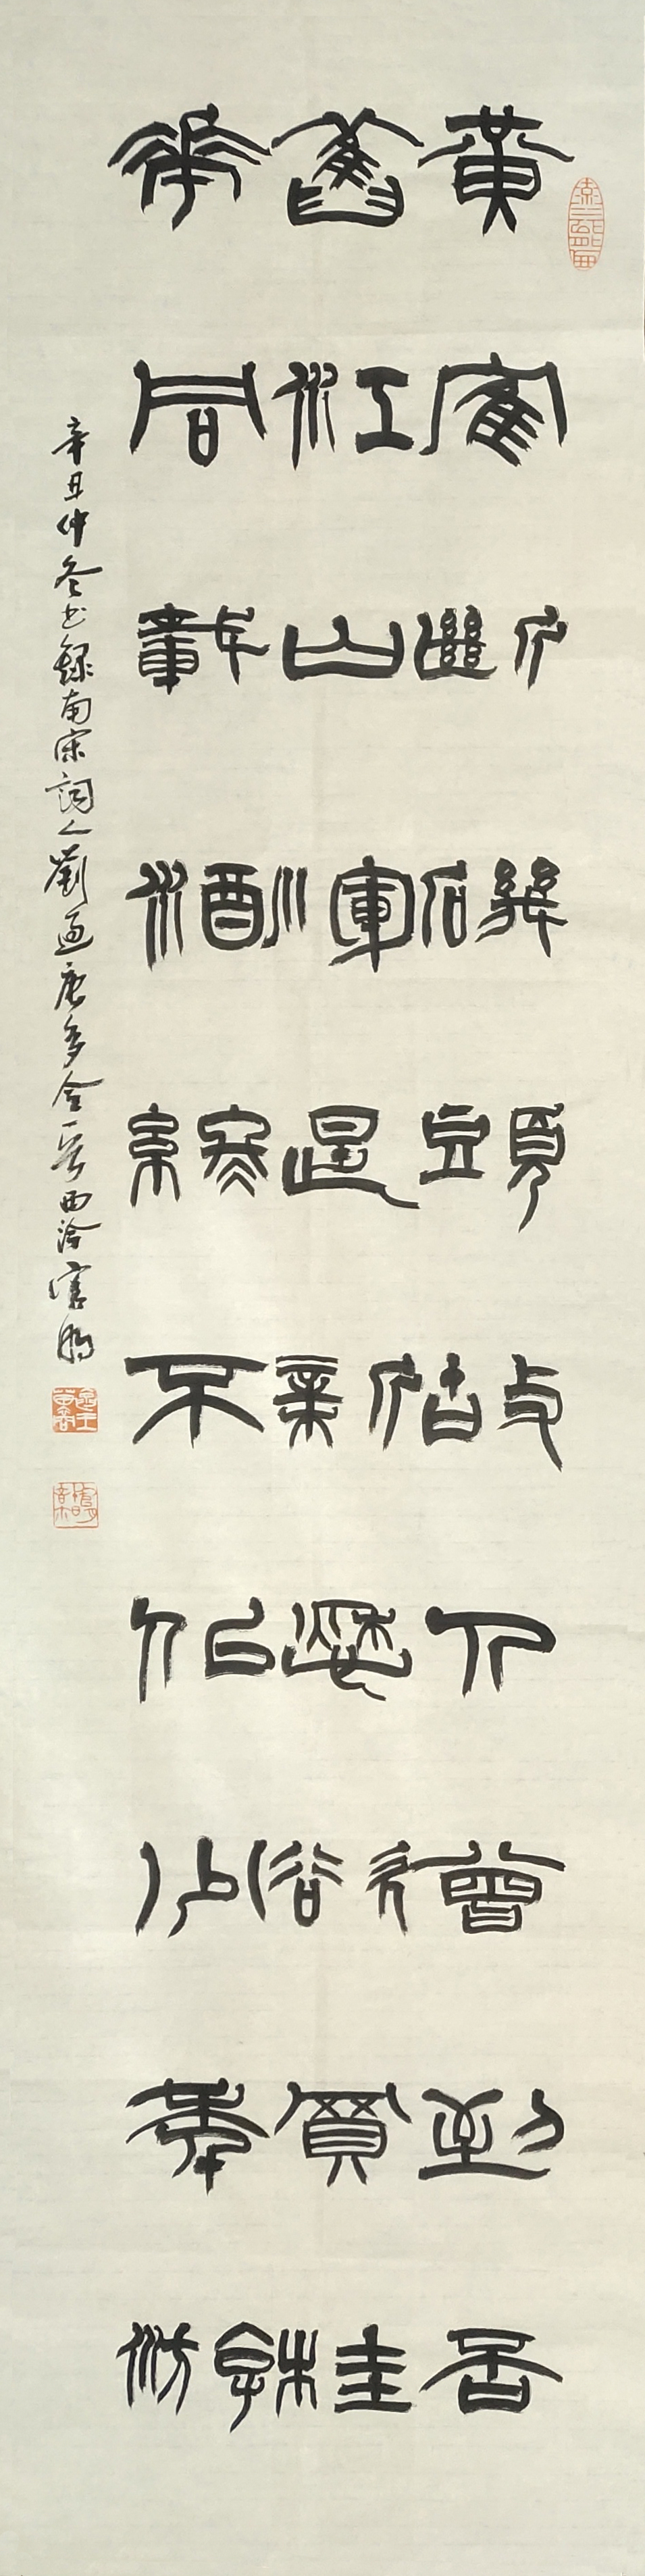 黃隺斷磯頭故人曾到否
舊江山渾是新愁欲買桂
華同載酒終不似少年游
辛丑仲冬书錄南宋詞人劉過唐多令一 西泠